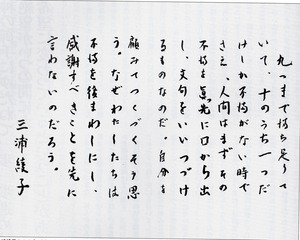 九つまで満ち足りて
いて、十のうち一つだ
けしか不満がない時で
さえ、人間はまずその
不満を真先に口から出
し、文句をいいつづけ
るものなのだ。自分を
顧みてつくづくそう思
う。なぜわたしたちは
不満を後まわしにし、
感謝すべきことを先に
言わないのだろう。
三浦綾子